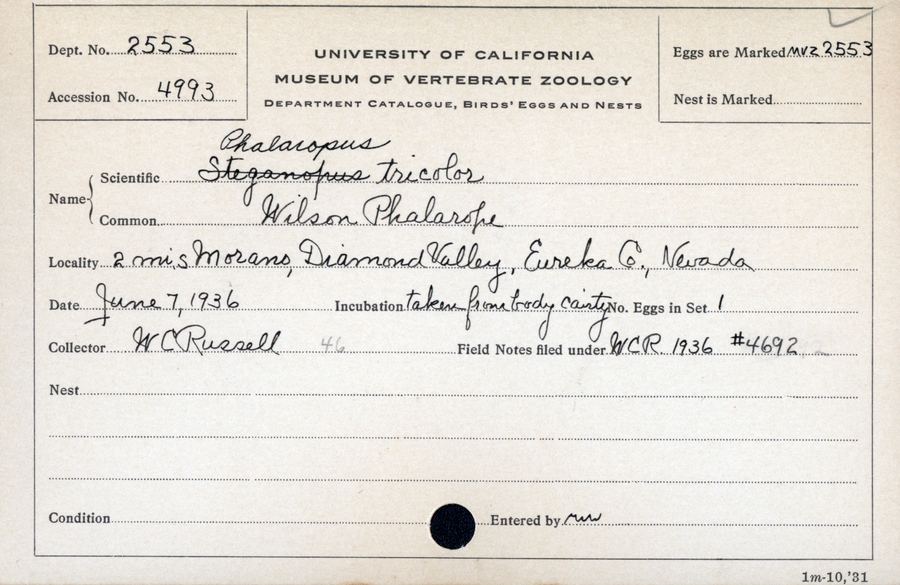 Dept. No. 2553
Accession No. 4993
UNIVERSITY OF CALIFORNIA
MUSEUM OF VERTEBRATE ZOOLOGY
DEPARTMENT CATALOGUE, BIRDS' EGGS AND NESTS
Eggs are Marked MVZ 2553
Nest is Marked
Phalaropus
Name Scientific Steganopus tricolor
Common Wilson Phalarope
Locality 2 mi s Morano, Diamond Valley, Eureka Co., Nevada
Date June 7, 1936 Incubation taken from body cavity No. Eggs in Set 1
Collector W C Russell 46 Field Notes filed under WCR 1936 #4692
Nest
Condition Entered by
1m-10,'31